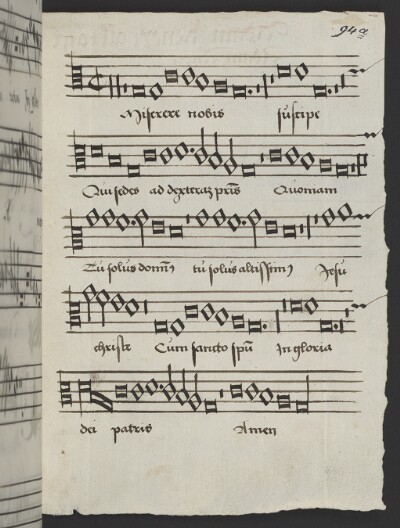 94a
Miserere nobis suscipe
Qui sedes ad dexteraz pris Quoniam
Tu solus domin9 tu solus altissim9 Jesu
christe Cum sancto spu In gloria
dei patris Amen